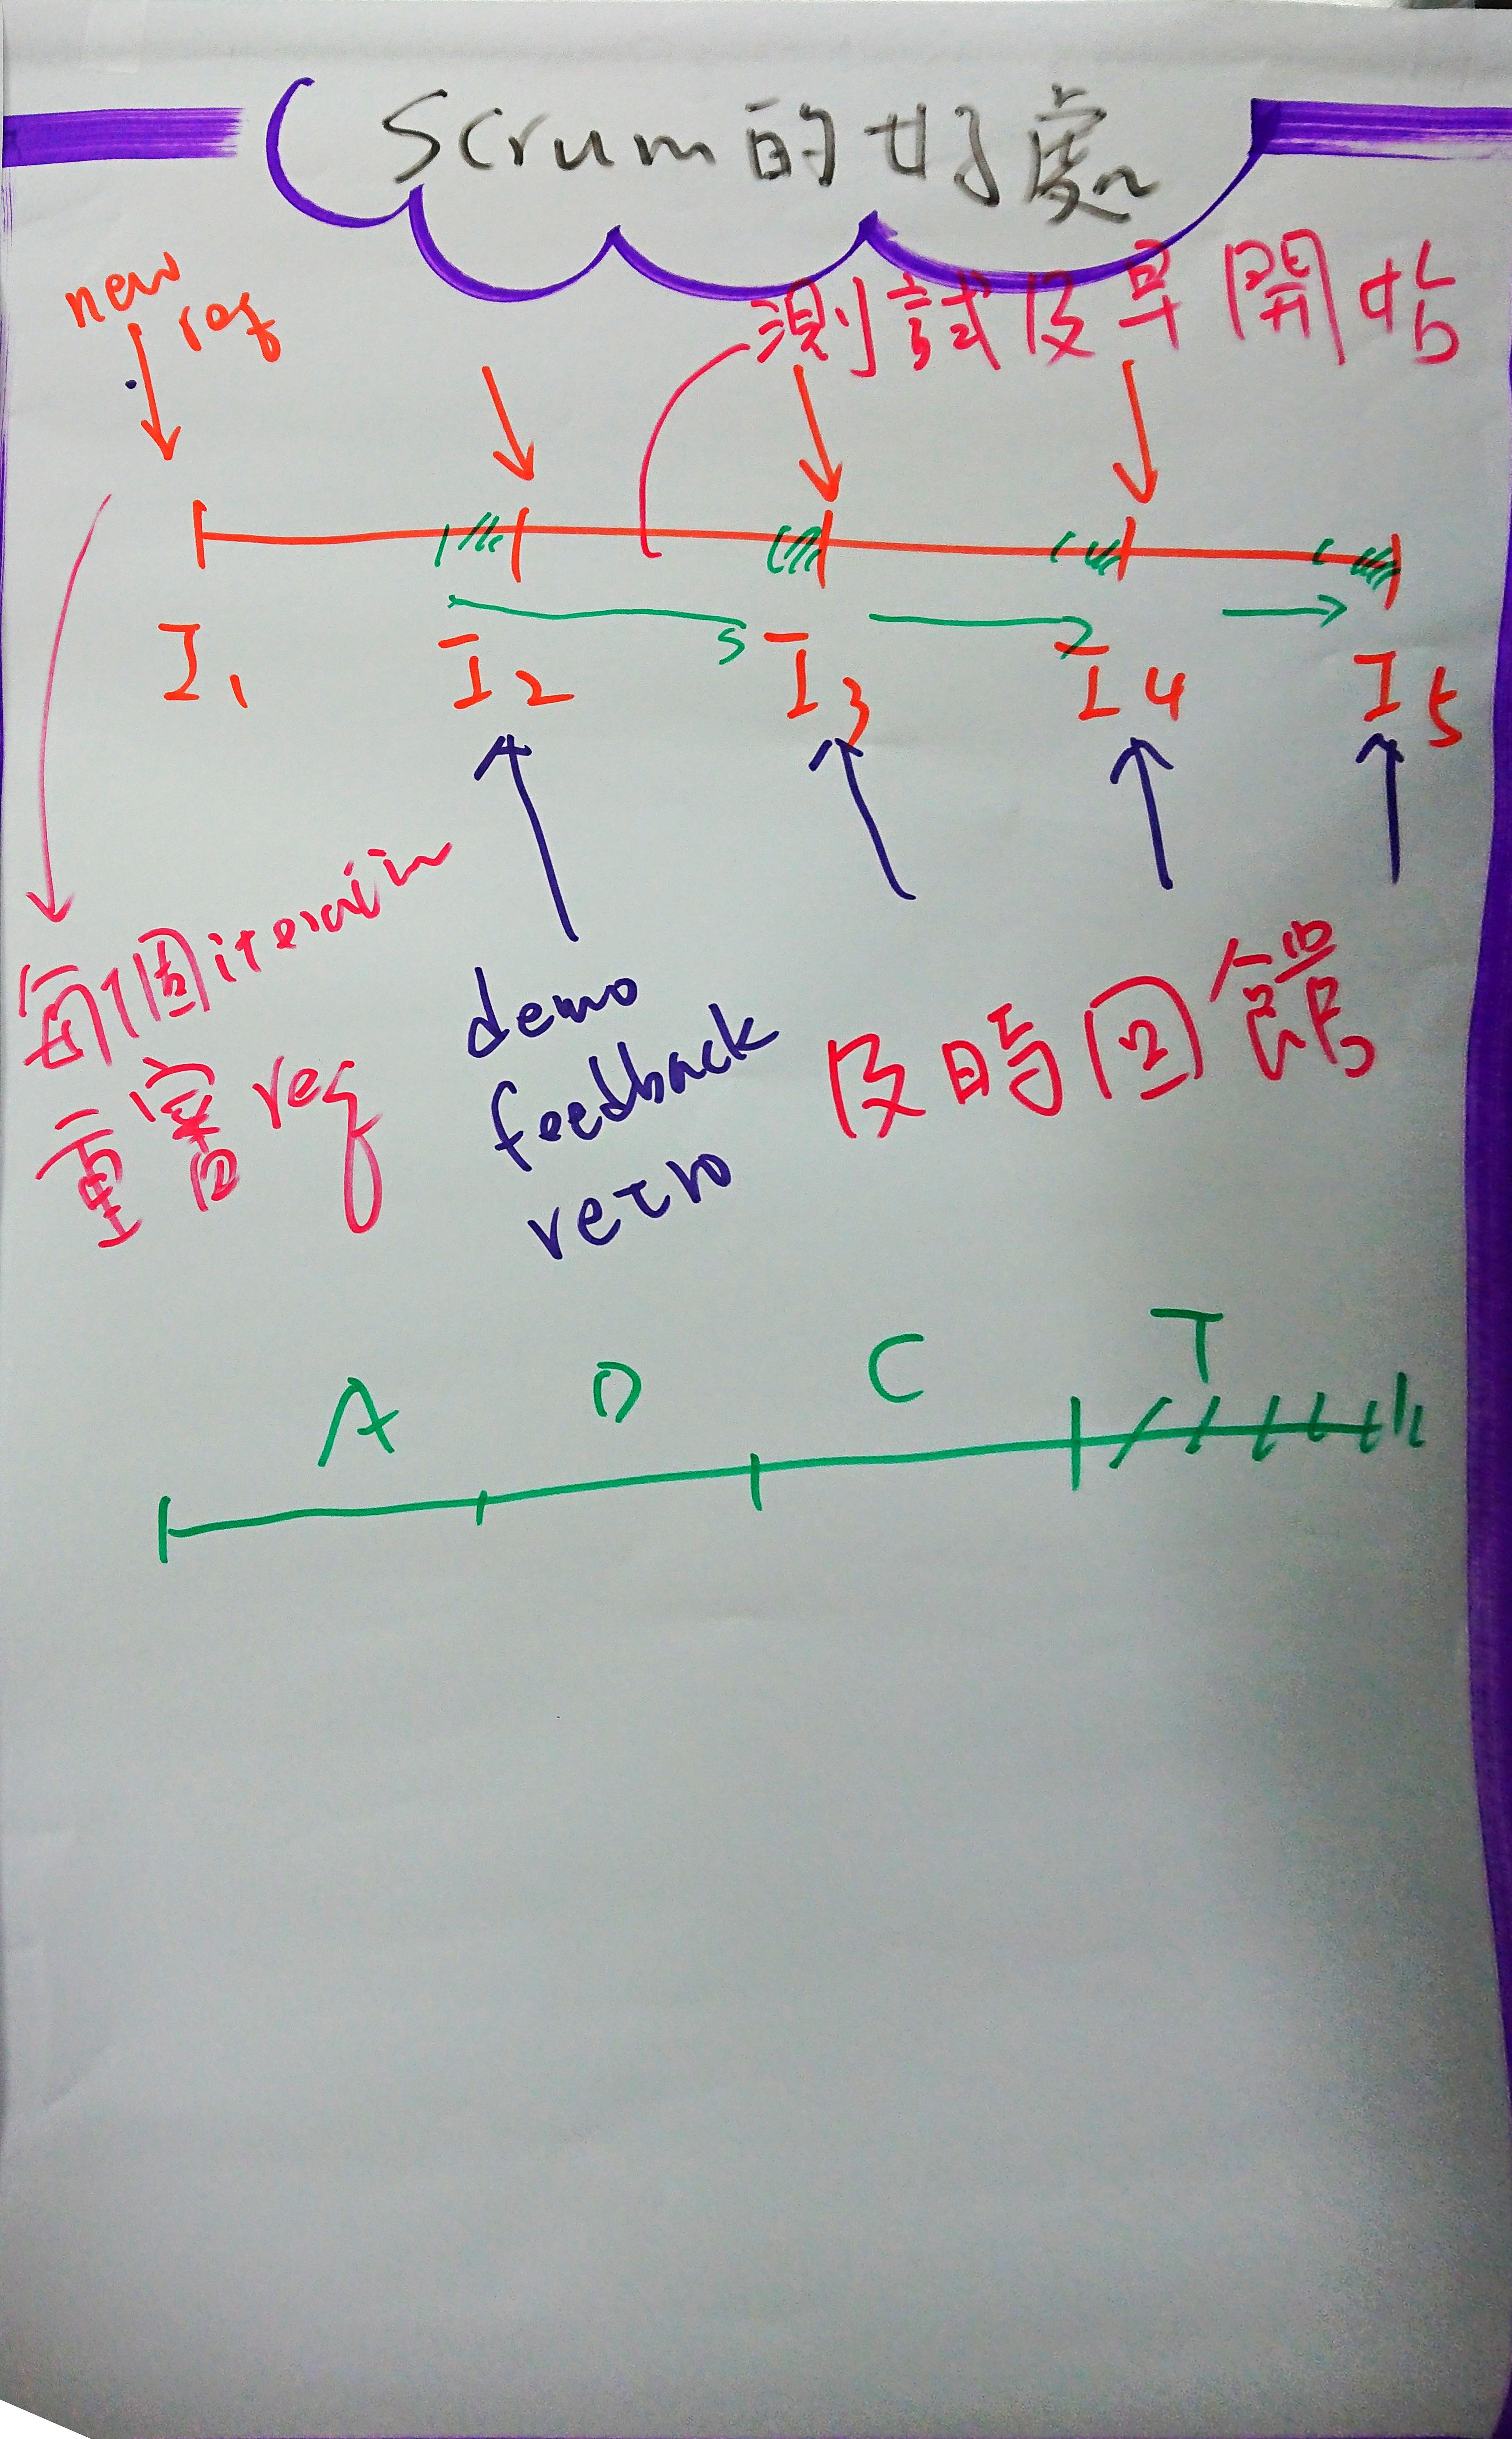 Scrum的好處
new
req
測試及早開始
I1 I2 I3 I4 I5
每個iteration
重審req
demo
feedback
retro
及時回饋
A D C T